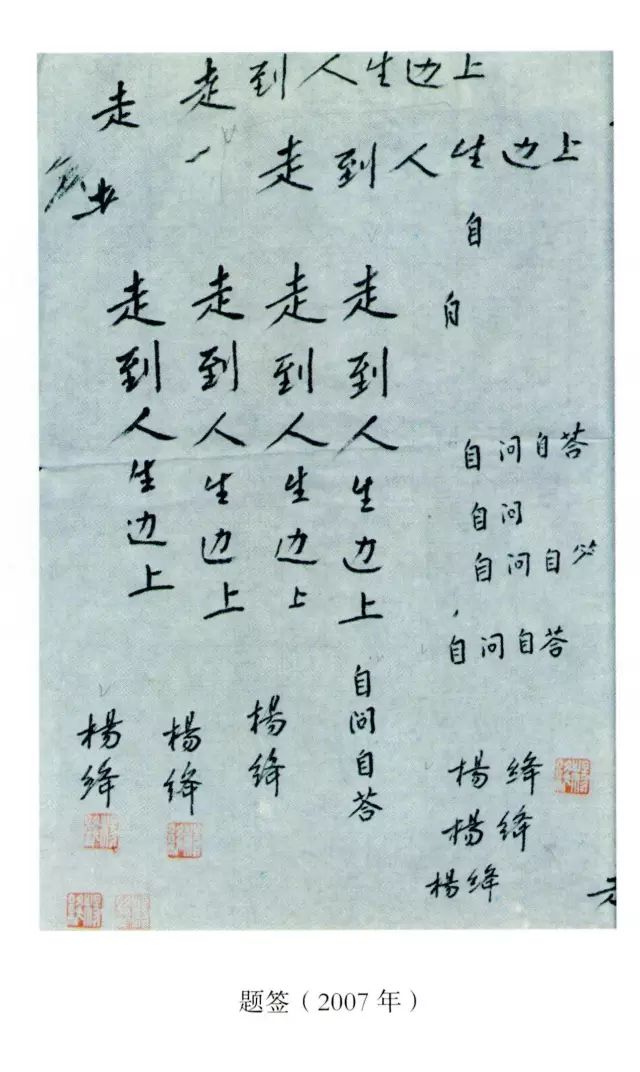 走到人生边上
走
走到人生边上
自
自
走到人生边上 自问自答
走到人生边上 楊绛
走到人生边上 楊绛
走到人生边上 楊绛
自问自答
自问
自问自
自问自答
楊绛
楊绛
楊绛
走
题签（2007年）